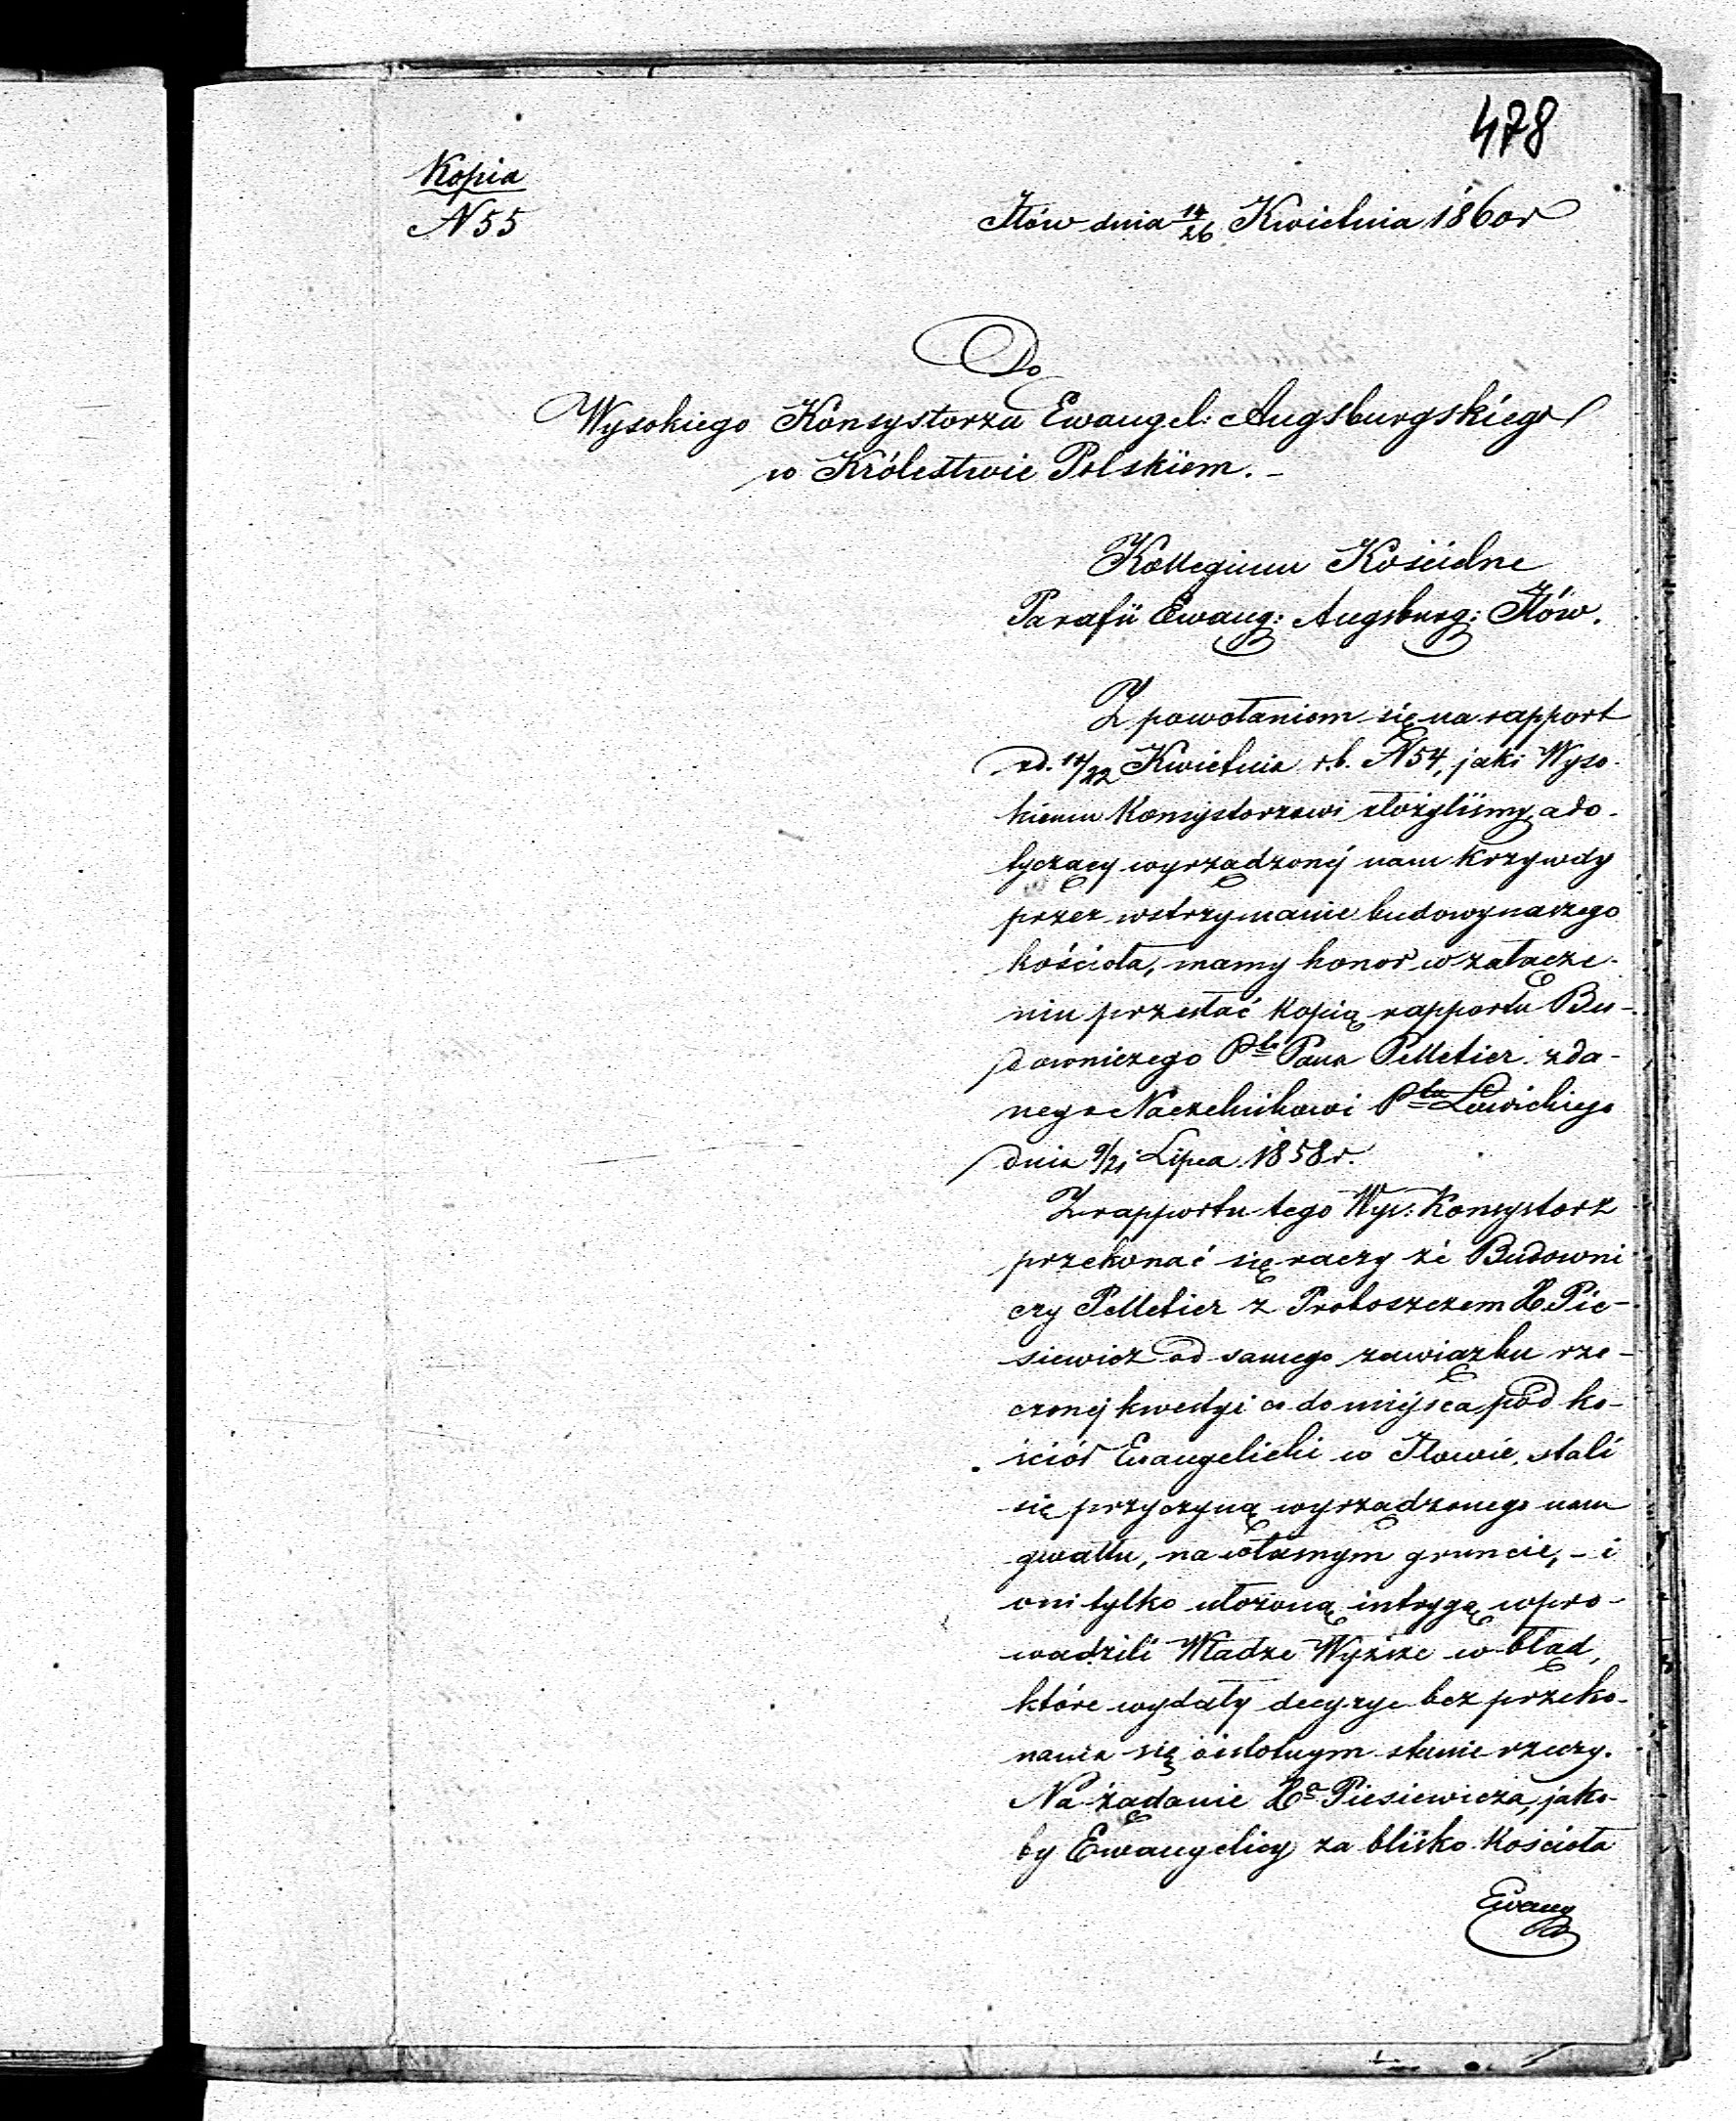 478
Kopia
N 55
Iłów dnia 14/26 Kwietnia 1860 r
Do
Wysokiego Konsystorza Ewangel: Augsburgskiego
w Królestwie Polskiem. -
Kollegium Kościelne
Parafii Ewang: Augsburg: Iłów.
Z powołaniem się na rapport
z d. /22 Kwietnia r.b. N 54, jaki Wyso-
kiemu Konsystorzowi złożyliśmy, a do-
tyczący wyrządzonéj nam krzywdy
przez wstrzymanie budowy naszego
kościoła, mamy honor w załącze-
niu przesłać kopią rapportu Bu-
downiczego Ptu Pana Pelletier zda-
nego Naczelnikowi Ptu Łowickiego
dnia 9/21 Lipca 1858 r.
Z rapportu tego Wys: Konsystorz
przekonać się raczy że Budowni
czy Pelletier z Proboszczem X. Pie-
siewicz od samego zawiązku rze-
czonéj kwestyi co do miejsca pod ko-
ściół Ewangelicki w Iłowie, stali
się przyczyną wyrządzonego nam
gwałtu, na własnym gruncie, - i
oni tylko ułożoną intrygą wpro-
wadzili Władze Wyższe w błąd,
które wydały decyzye bez przeko-
nania się o istotnym stanie rzeczy.
Na żądanie Xa Piesiewicza, jako-
by Ewangelicy za blisko Kościoła
Ewang